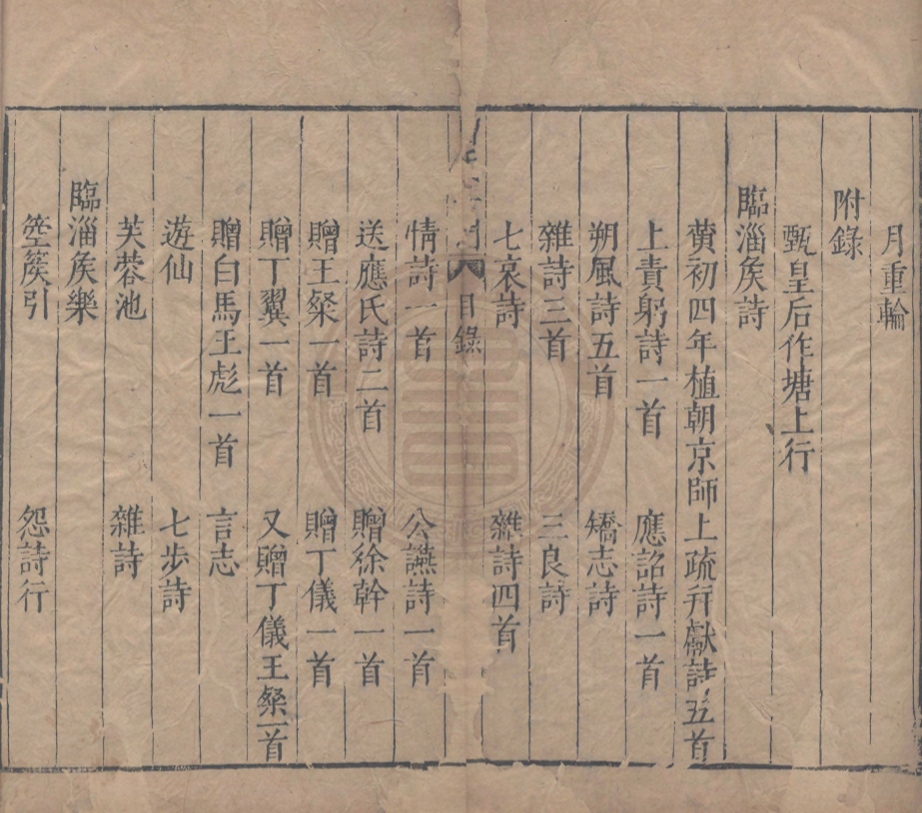 月重輪
附錄
甄皇后作塘上行
臨淄矦詩
黄初四年植朝京師上疏幷獻詩五首
上責躬詩一首 應詔詩一首
朔風詩五首 矯志詩
雜詩三首 三良詩
七哀詩 雜詩四首
目錄
情詩一首 公讌詩一首
送應氏詩二首 贈徐幹一首
贈王粲一首 贈丁儀一首
贈丁翼一首 又贈丁儀王粲一首
贈白馬王彪一首 言志
遊仙 七步詩
芙蓉池 雜詩
臨淄矦樂
箜篌引 怨詩行